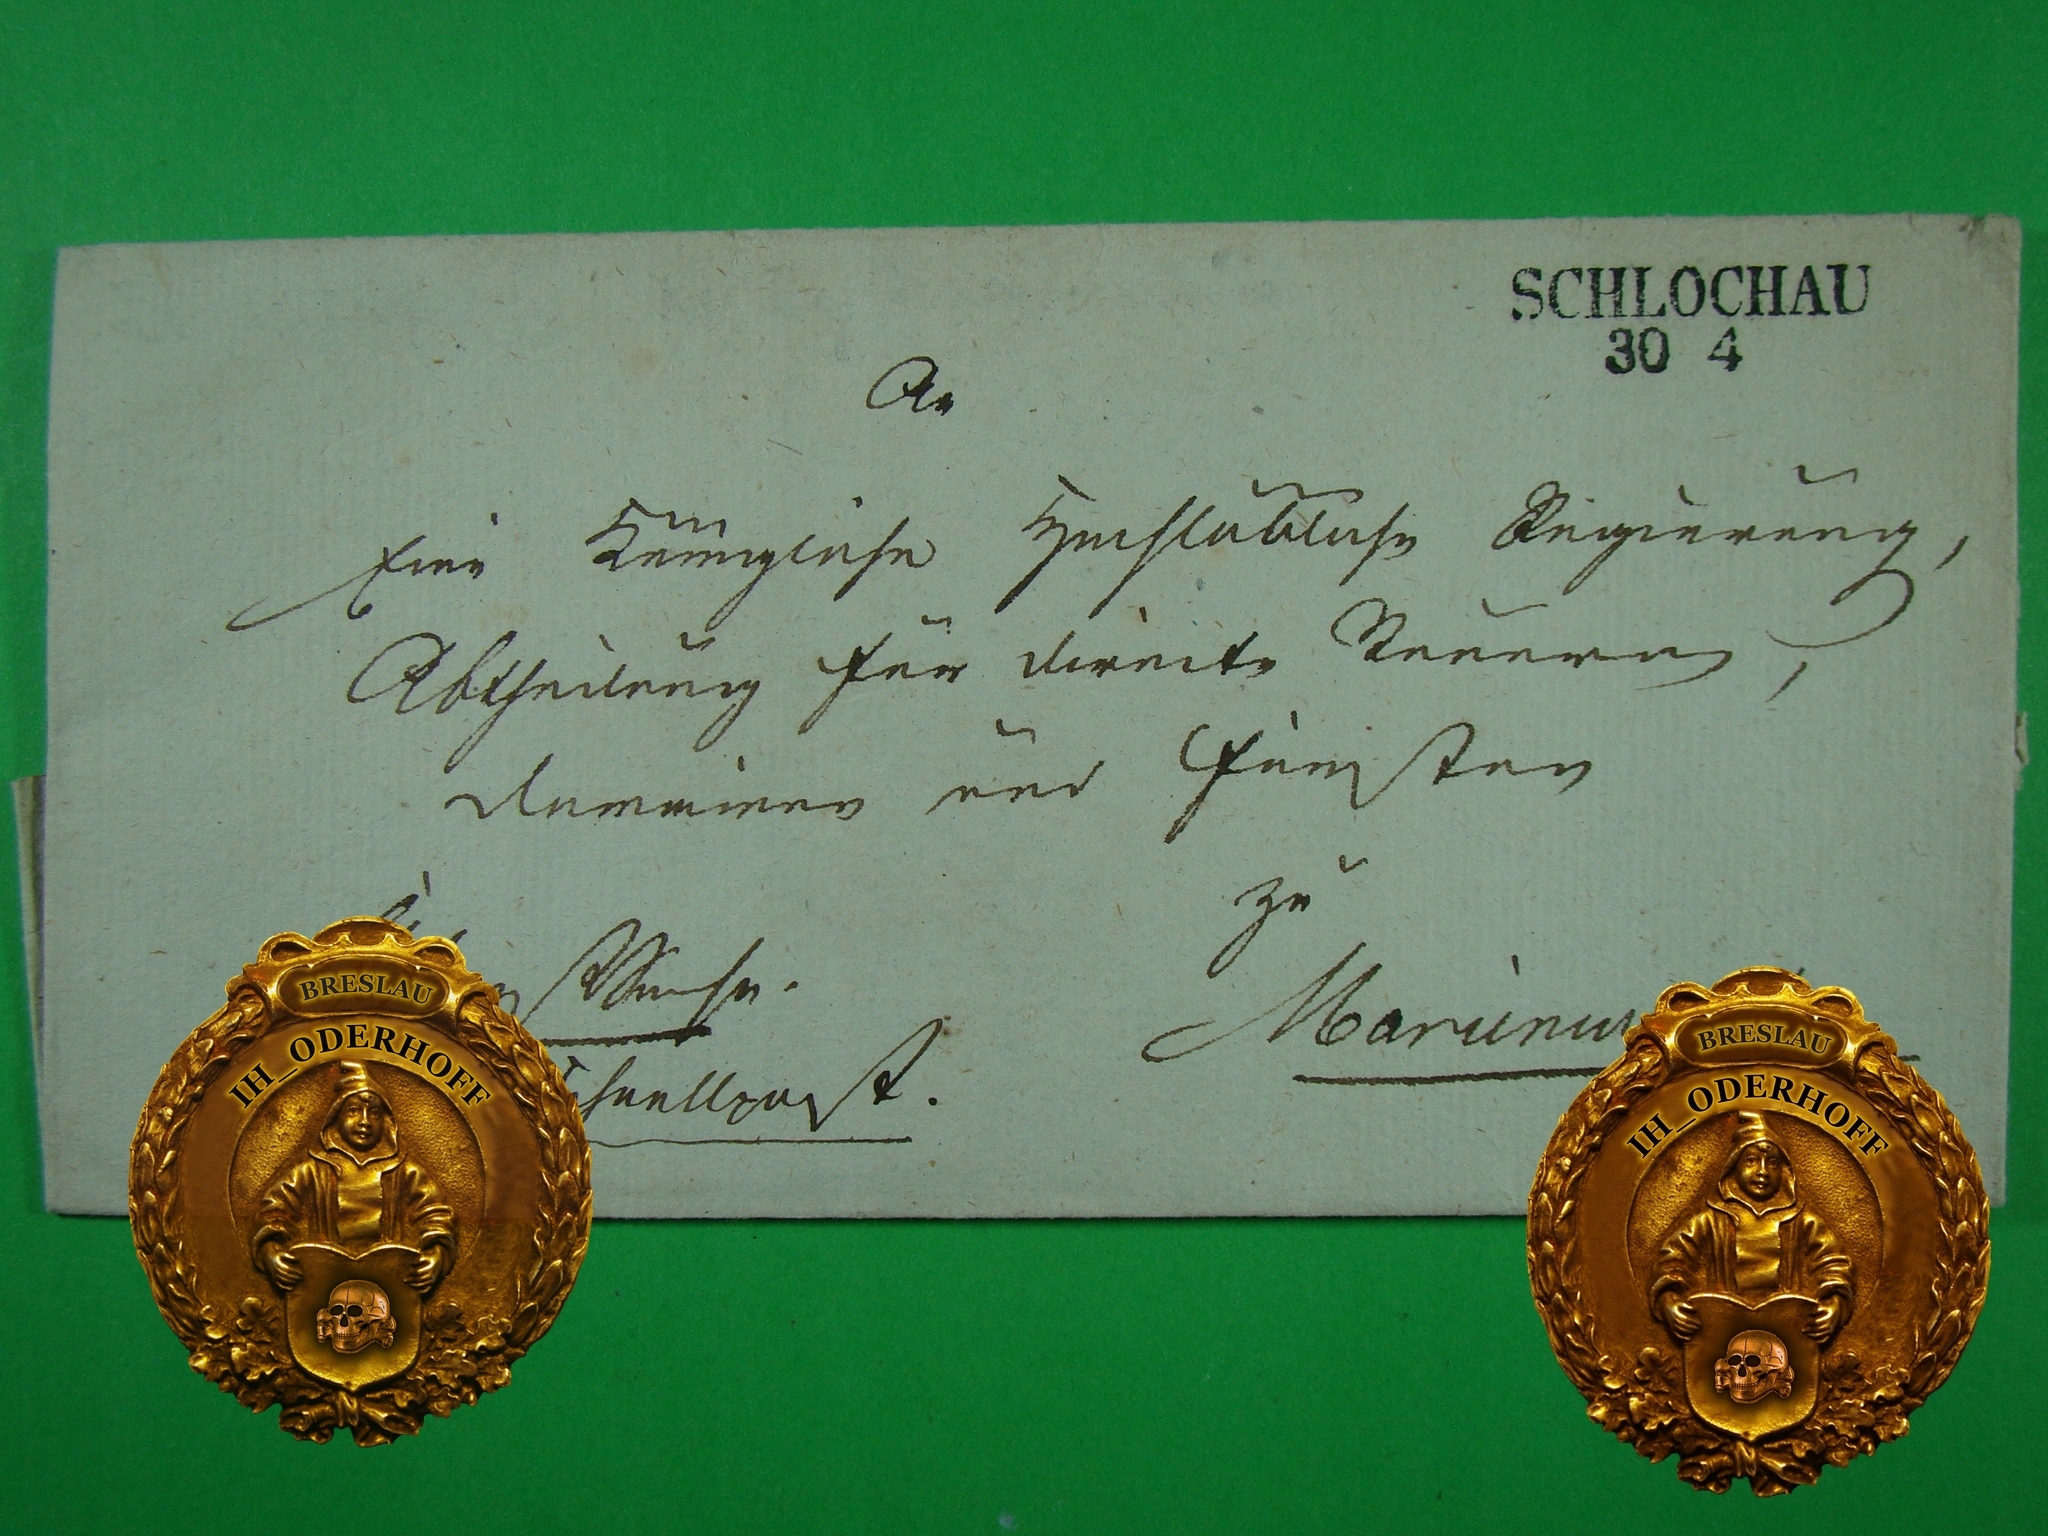 SCHLOCHAU
30 4
An
Eine Königliche Hochlöbliche Regierung,
Abtheilung für directe Steuern,
Domainen und Forsten
zu
Schnellpost.
BRESLAU
IH_ODERHOFF
BRESLAU
IH_ODERHOFF